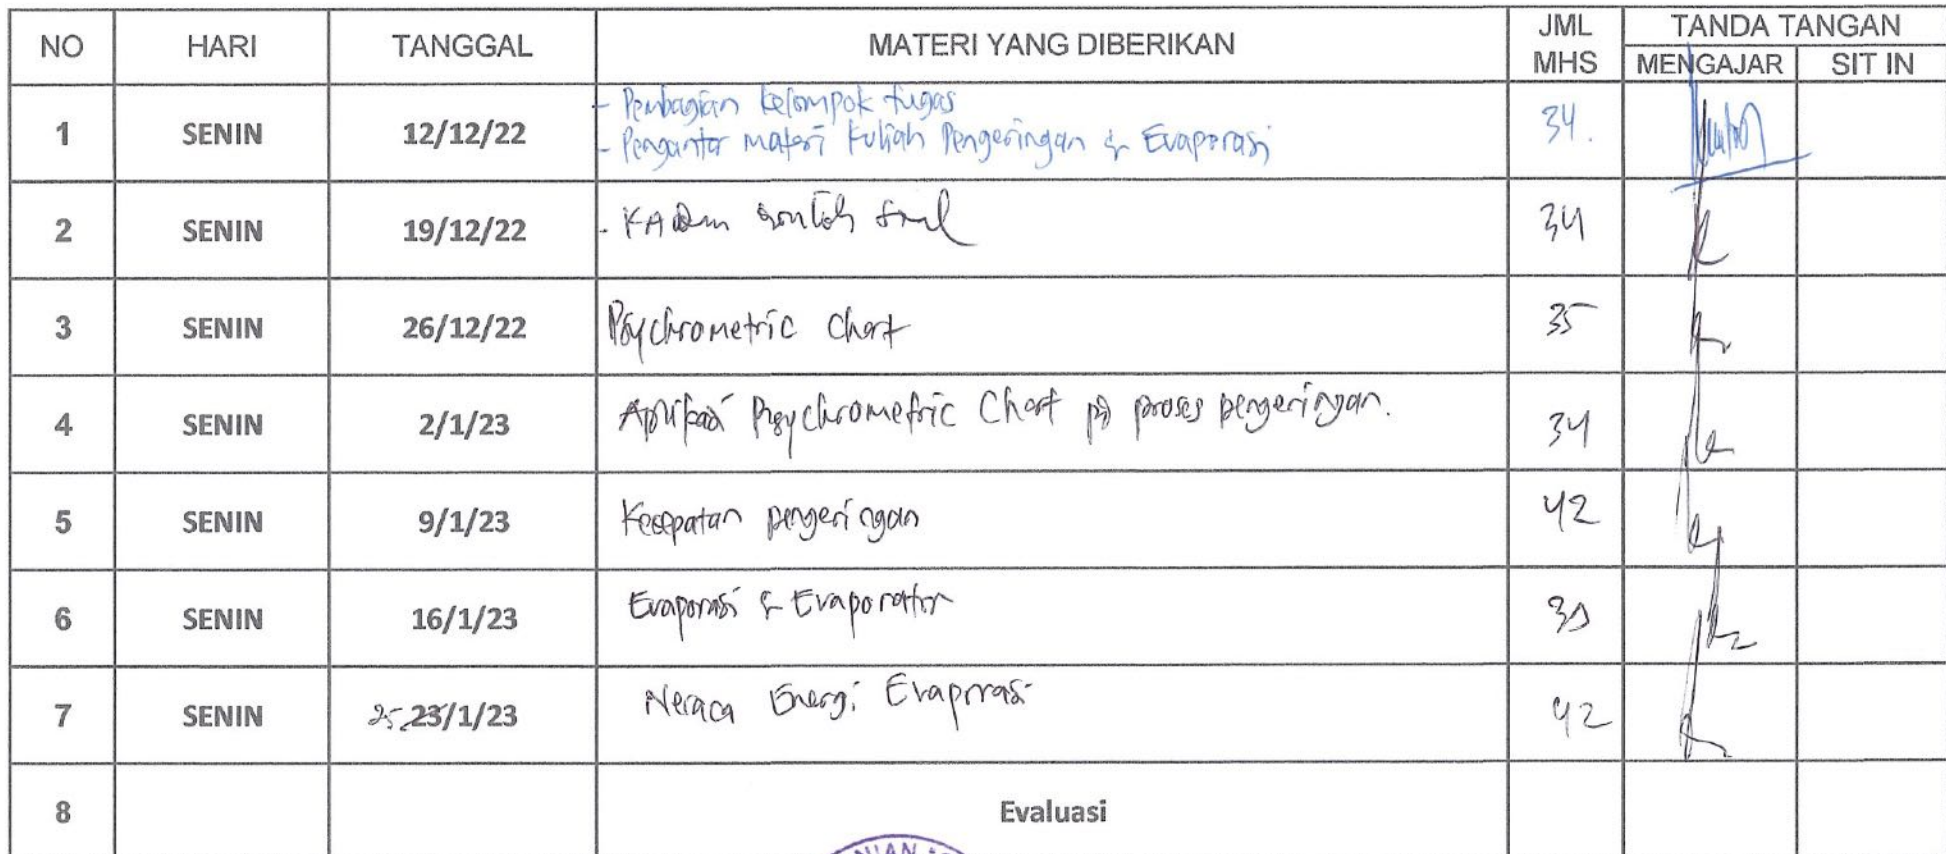 NO HARI TANGGAL MATERI YANG DIBERIKAN JML MHS TANDA TANGAN
MENGAJAR SIT IN
1 SENIN 12/12/22 - Pembagian kelompok tugas 34.
- Pengantar materi kuliah Pengeringan & Evaporasi
2 SENIN 19/12/22 - KA dan contoh soal 34
3 SENIN 26/12/22 Psychrometric Chart 35
4 SENIN 2/1/23 Aplikasi Psychrometric Chart pd proses pengeringan. 34
5 SENIN 9/1/23 Kecepatan pengeringan 42
6 SENIN 16/1/23 Evaporasi & Evaporator
7 SENIN 25 23/1/23 Neraca Energi Evaporasi 42
8 Evaluasi